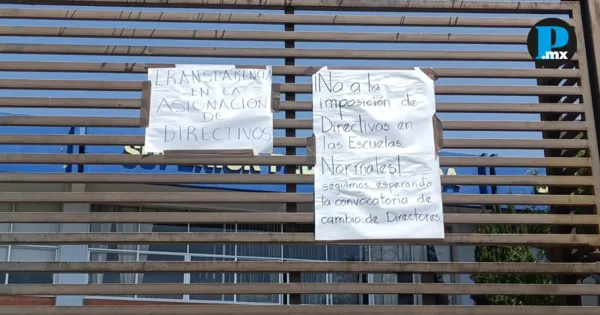 TRANSPARENCIA
EN LA
ASIGNACIÓN
DE
DIRECTIVOS
¡No a la
imposición de
Directivos en
las Escuelas
Normales!
seguimos esperando
la convocatoria de
cambio de Directores
P
.mx